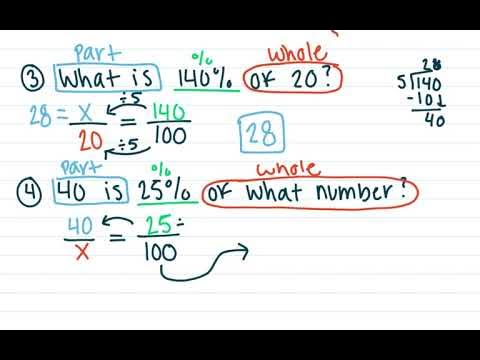 part % whole
③ What is 140% of 20?
28 = x/20 = 140/100
÷5
÷5
28
28
5)140
-10↓
40
part % whole
④ 40 is 25% of what number?
40/x = 25/100 ÷